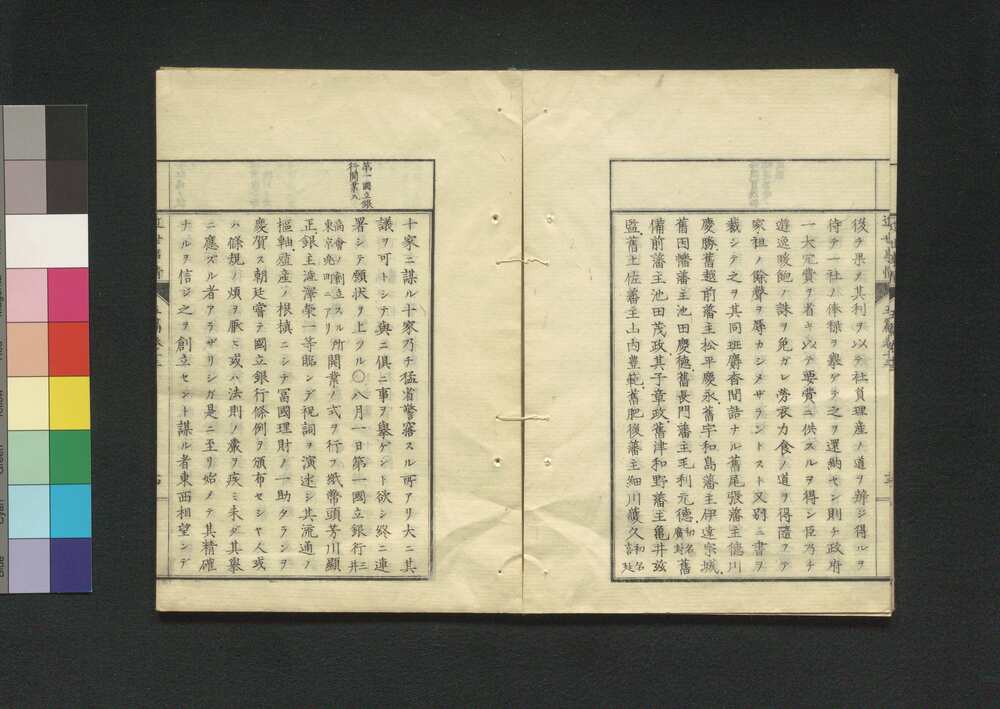 後チ果ヲ其利ヲ以テ社員理産ノ道ヲ辨ジ得ルヲ
待チ一社ノ俸祿ヲ擧ゲテ之ヲ還納セン則チ政府
一大冗費ヲ省キ以テ要費ニ供スルヲ得ン臣乃チ
遊逸暖飽ノ誅ヲ免ガレ勞衣力食ノ道ヲ得隨ヲテ
家祖ノ餘聲ヲ辱カシメザラントスト又別ニ書ヲ
裁シテ之ヲ其同班麝香間詰ナル舊尾張藩主德川
慶勝舊越前藩主松平慶永舊宇和島藩主伊達宗城
舊因幡藩主池田慶德舊長門藩主毛利元德初名廣封舊
備前藩主池田茂政其子章政舊津和野藩主亀井玆
監舊土佐藩主山内豊範舊肥後藩主細川護久初名
十家ニ謀ル十家乃チ猛省警寤スル所アリ大ニ其
議ヲ可トシテ與ニ俱ニ事ヲ擧ゲント欲シ終ニ連
署シテ願狀ヲ上ツル〇八月一日第一國立銀行三井
商會ノ創立スル所東京兜町ニアリ開業ノ式ヲ行フ紙幣頭芳川顯
正銀主澁澤榮一等臨ンデ祝詞ヲ演述シ其流通ノ
樞軸殖產ノ根槙ニシテ冨國理財ノ一助タランヲ
慶賀ス朝廷嘗テ國立銀行條例ヲ頒布セシヤ人或
ハ條規ノ煩ヲ厭ヒ或ハ法則ノ嚴ヲ疾ミ未ダ其擧
ニ應ズル者アラザリシガ是ニ至リ始メテ其精確
ナルヲ信ジ之ヲ創立セント謀ル者東西相望ンデ
第一國立銀
行開業ス